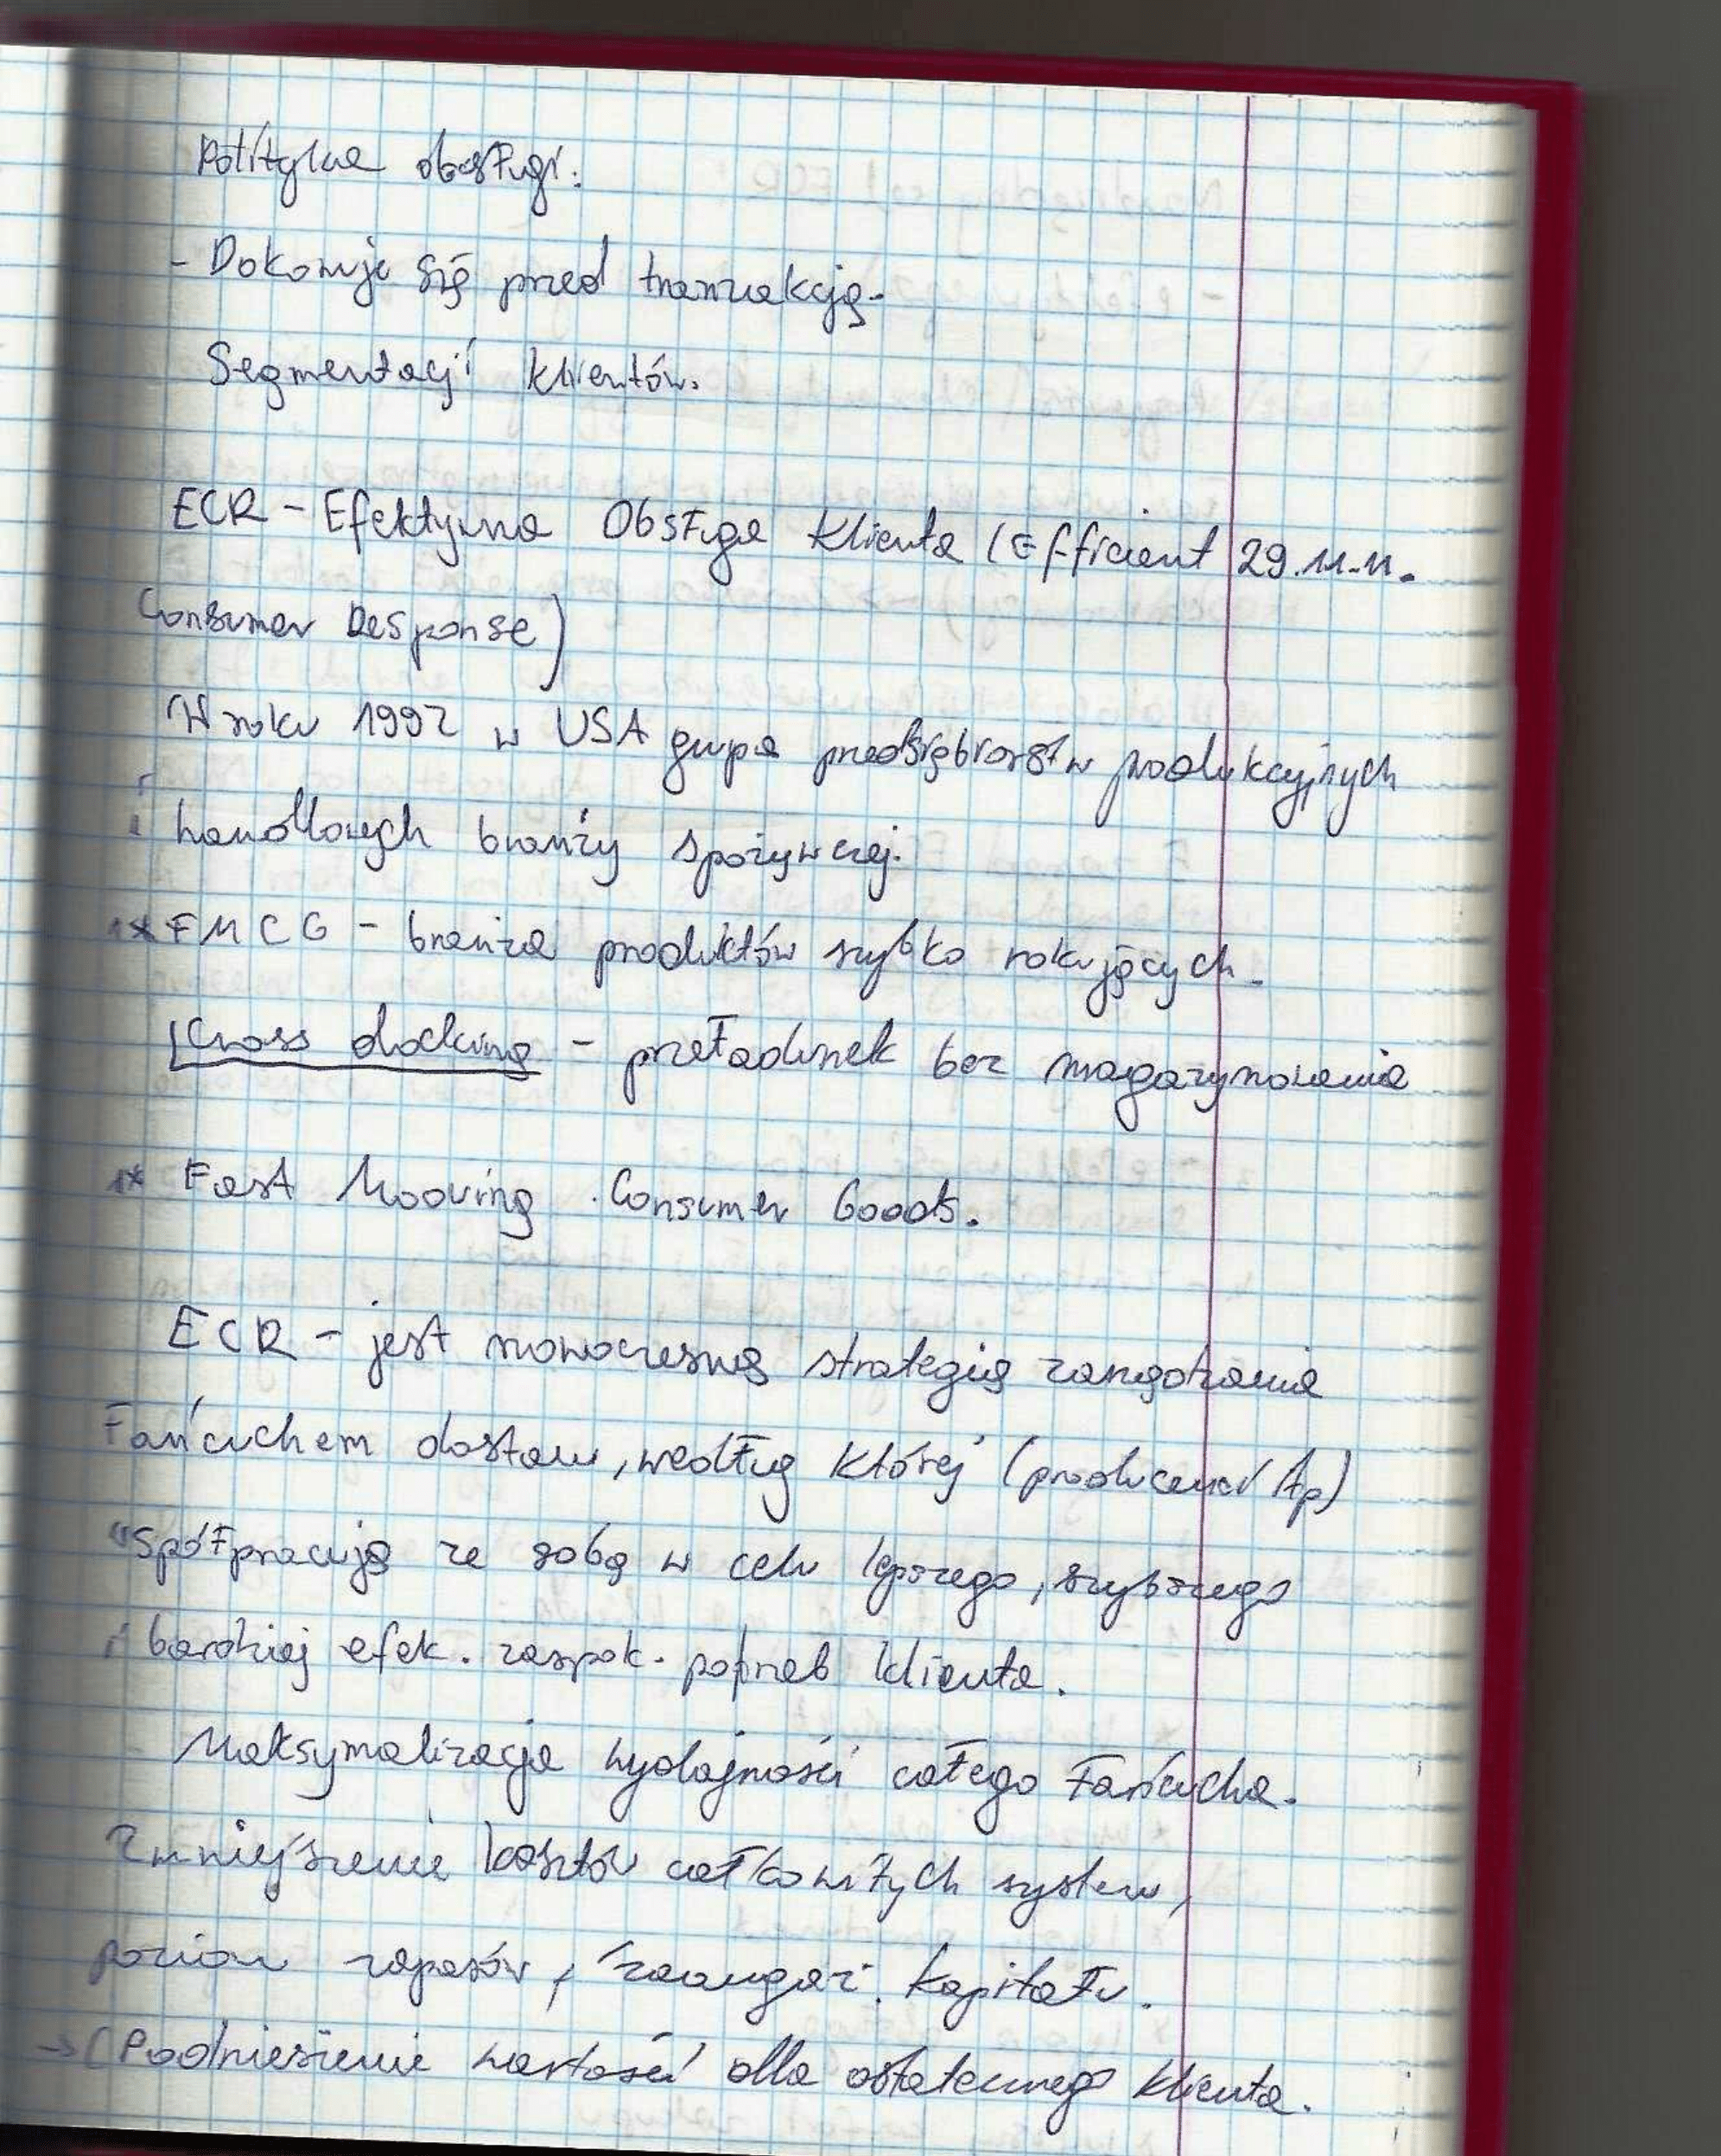 Polityka obsługi:
- Dokonuje się przed tranzakcją.
Segmentacji klientów.
ECR - Efektywna Obsługa Klienta (Efficient 29.11.11.
Consumer Response)
W roku 1992 w USA grupa przedsiębiorstw produkcyjnych
i handlowych branży spożywczej.
1* FMCG - branża produktów szybko rokujących.
Cross docking - przeładunek bez magazynowania
1* Fast Mooving Consumer Goods.
ECR - jest nowoczesną strategią zarządzania
łańcuchem dostaw, według której (producenci
współpracują ze sobą w celu lepszego, szybszego
i bardziej efek. zaspok. potrzeb klienta.
Maksymalizacja wydajności całego łańcucha.
Zmniejszenie kosztów całkowitych system,
poziom zapasów, zaangaż. kapitału.
→ (Podniesienie wartości dla ostatecznego klienta.